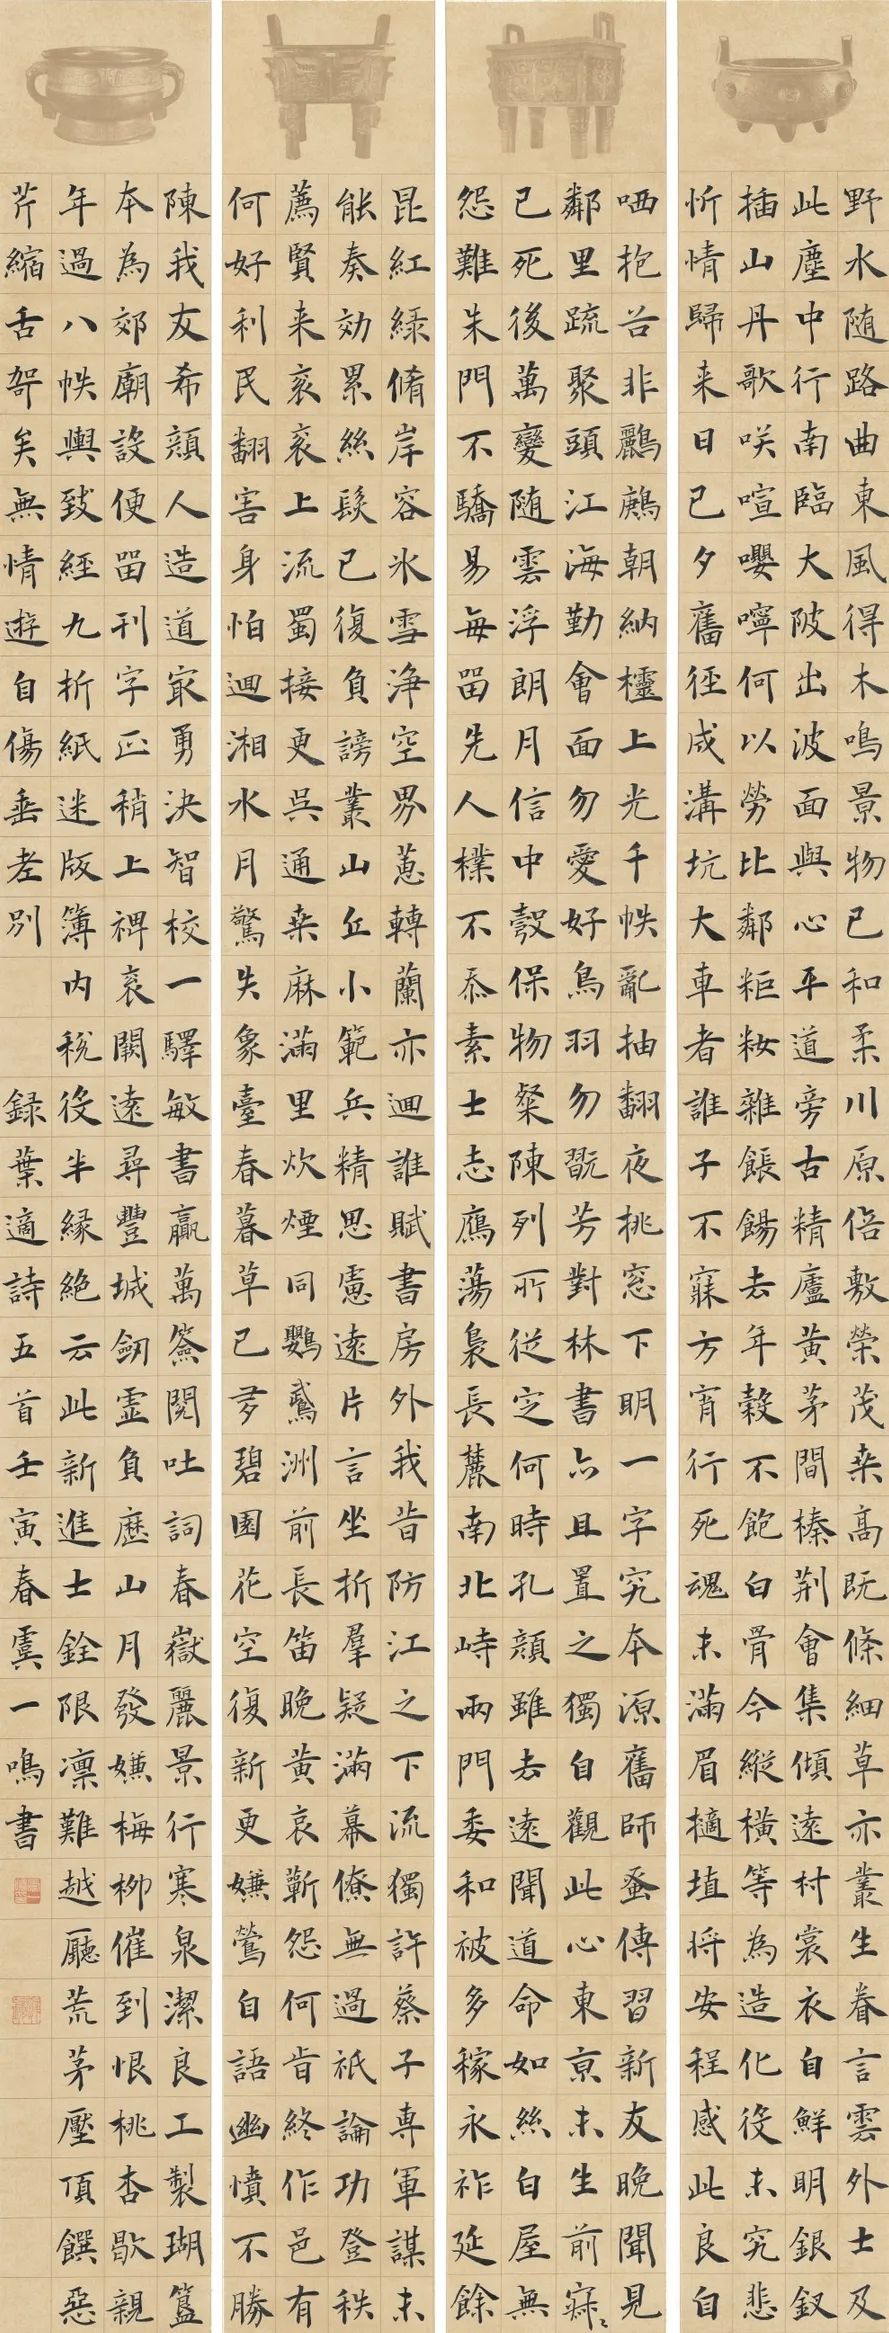 野水随路曲東風得木鳴景物已和柔川原倍敷榮茂桒高既條細草亦叢生眷言雲外士及
此塵中行南臨大陂出波面與心平道旁古精廬黄茅間榛荆會集傾遠村裳衣自鮮明銀釵
插山丹歌咲喧嚶嚀何以勞比鄰粔籹雜餦餳去年穀不飽白骨今縱横等為造化役未究悲
忻情歸来日已夕舊徑成溝坑大車者誰子不寐方宵行死魂未滿眉擿埴将安程感此良自
哂抱非鸝鷓朝納櫺上光千帙亂抽翻夜挑窓下明一字究本源舊師蚤傳習新友晚聞見
鄰里疏聚頭江海勤會面勿愛好鳥羽勿翫芳對林書亦且置之獨自觀此心東亰未生前寐々
已死後萬變随雲浮朗月信中彀保物粲陳列所從定何時孔顔雖去遠聞道命如絲白屋無
怨難朱門不驕易毎留先人樸不忝素士志鴈蕩裊長麓南北峙兩門委和被多稼永祚延餘
昆紅緑脩岸容氷雪浄空界蕙轉蘭亦迴誰賦書房外我昔防江之下流獨許蔡子専軍謀未
能奏効累絲髮已復負謗叢山丘小範兵精思慮遠片言坐折羣疑滿幕僚無過祇論功登秩
薦賢来衮衮上流蜀接更呉通桒麻滿里炊煙同鸚鵡洲前長笛晚黄哀蘄怨何肯終作邑有
何好利民翻害身怕迴湘水月驚失象臺春暮草已芽碧園花空復新更嫌鶯自語幽憤不勝
陳我友希顔人造道㝡勇決智校一驛敏書贏萬簽閱吐詞春嶽麗景行寒泉潔良工製瑚簋
本為郊廟設便留刊字正稍上裨衮闕遠尋豐城劒霊負歷山月發嫌梅柳催到恨桃杏歇親
年過八帙輿致經九折紙迷版簿内税役半縁絶云此新進士銓限凛難越廳荒茅壓頂饌惡
芹縮舌哿矣無情遊自傷垂老別 録葉適詩五首壬寅春虞一鳴書